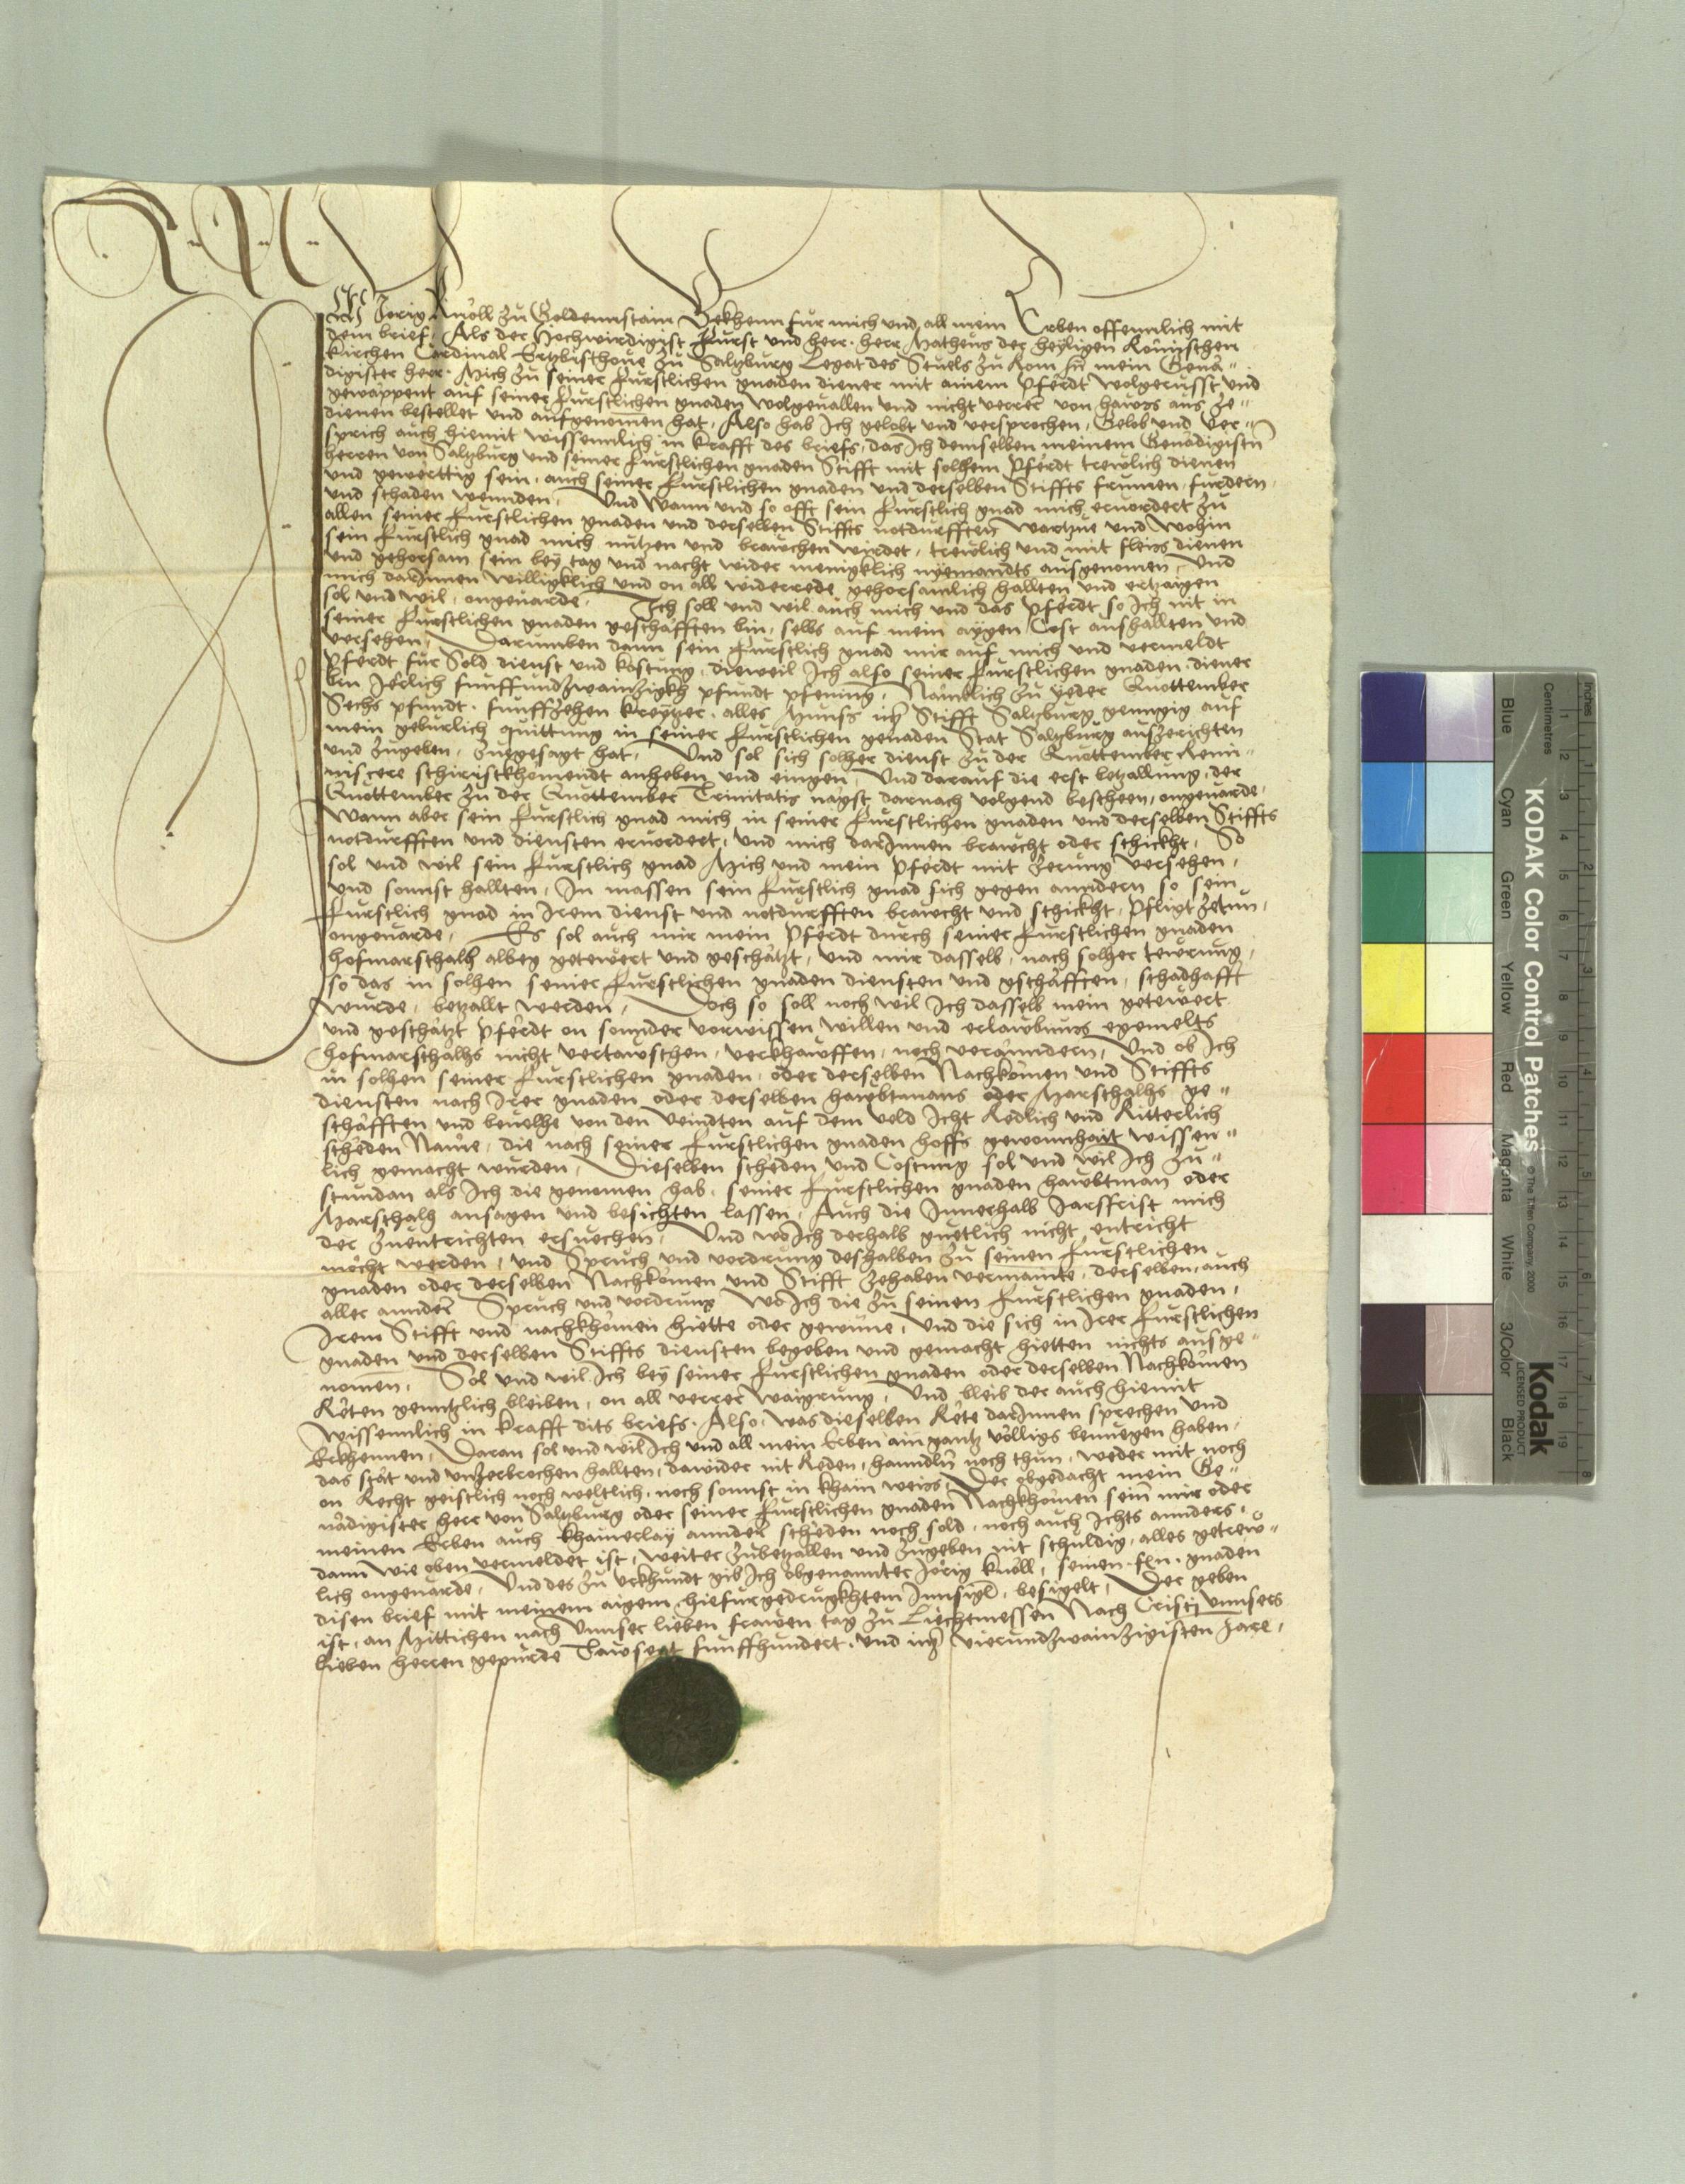 Ich Jorig Knöll zu Goldennstain Bekhenn fur mich und all mein Erben offennlich mit
dem brief. Als der Hochwirdigist Furst und herr. herr Matheus der heyligen Römischen
Kirchen Cardinal Ertzbischoue zu Saltzburg Legat des Stuels zu Rom mein Genä-
digister herr. Mich zu seiner Furstlichen gnaden diener mit ainem Pferdt wolgerusst und
gewappent auf seiner Furstlichen gnaden wolgeuallen und nicht verrer von hawss aus ze-
dienen bestellet und aufgenomen hat, Also hab Ich gelobt und versprochen, Gelob und Ver-
sprich auch hiemit wissenntlich in krafft des briefs, das Ich demselben meinem Genädigisten
herren von Saltzburg und seiner Furstlichen gnaden Stifft mit solhem Pferdt trewlich dienen
und gewerttig sein, auch seiner Furstlichen gnaden und derselben Stiffts frumen, furdern,
und schaden wennden, Und wann und so offt sein Furstlich gnad mich eruordert zu
allen seiner Furstlichen gnaden und derselben Stiffts notdurfften wartzue und wohin
sein Furstlich gnad mich nutzen und brawchen wirdet, trewlich und mit fleiss dienen
und gehorsam sein bey tag und nacht wider menigklich nyemandts ausgenomen, Und
mich darInnen willigklich und on all widerrede gehorsamlich hallten und ertzaigen
sol und wil, ongeuarde, Ich soll und wil auch mich und das Pferdt so Ich nit in
seiner Furstlichen gnaden geschäfften bin, selbs auf mein aygen Cost aushallten und
versehen, Darumben dann sein Furstlich gnad mir auf mich und vermeldt
Pferdt fur Sold dienst und kostung, dieweil Ich also seiner Furstlichen gnaden diener
bin Jerlich funffundzwainzigkh pfundt pfening, Namblich zu yeder Quottember
Sechs pfundt. funffzehen kreytzer. alles Munss im Stifft Saltzburg genngig auf
mein geburlich quittung in seiner Furstlichen genaden Stat Saltzburg auszerichten
und zugeben, zuegesagt hat, Und sol sich solher dienst zu der Quottember Remi-
niscere schiristkhomendt anheben und eingen, Und darauf die erst betzallung, der
Quottember zu der Quottember Trinitatis nagst darnach volgend bescheen, ongeuarde,
Wann aber sein Furstlich gnad mich in seiner Furstlichen gnaden und derselben Stiffts
notdurfften und diensten eruordert, und mich darInnen brawcht oder schickht, So
sol und wil sein Furstlich gnad Mich und mein Pferdt mit zerung versehen,
und sonnst hallten, In massen sein Furstlich gnad sich gegen anndern so sein
Furstlich gnad in Irem dienst und notdurfften brawcht und schickht, Pfligt zetun,
ongeuarde, Es sol auch mir mein Pferdt durch seiner Furstlichen gnaden
hofmarschalh albeg getewert und geschätzt, und mir dasselb, nach solher tewrung,
so das in solhen seiner Furstlichen gnaden diensten und gschäfften, schadhafft
wurde, betzallt werden, Doch so soll noch wil Ich dasselb mein getewert
und geschätzt Pferdt on sonnder vorwissen willen und erlawbnuss egemelts
hofmarschalhs nicht vertawschen, verkhawffen, noch verändern, Und ob Ich
in solhen seiner Furstlichen gnaden, oder derselben Nachkomen und Stiffts
diensten nach Irer gnaden oder derselben hawbtmans oder Marschalhs ge-
schäfften und beuelhe von den veindten auf dem veld Icht Redlich und Ritterlich
scheden Name, die nach seiner Furstlichen gnaden hoffs gewonnhait wissen-
lich gemacht wurden, Dieselben scheden und Costung sol und wil Ich zu-
stundan als Ich die genomen hab, seiner Furstlichen gnaden hawbtman oder
Marschalh ansagen und besichten lassen, Auch die Innerhalb Jarssfrist mich
der zuentrichten ersuechen, Und wo Ich derhalb guetlich nicht entricht
möcht werden, und Spruch und vordrung deshalben zu seinen Furstlichen
gnaden oder derselben Nachkomen und Stifft zehaben vermainte, derselben, auch
aller annder Spruch und vordrung wo Ich die zu seinen Furstlichen gnaden,
Irem Stifft und nachkhomen hiette oder gewune, und die sich in Irer Furstlichen
gnaden und derselben Stiffts diensten begeben und gemacht hietten nichts ausge-
nomen, Sol und wil Ich bey seiner Furstlichen gnaden oder derselben Nachkomen
Räten genntzlich bleiben, on all verrer waigrung, Und bleib der auch hiemit
wissenntlich in krafft dits briefs. Also, was dieselben Räte darInnen sprechen und
Erkhennen, Daran sol und wil Ich und all mein Erben ain gantz völligs benuegen haben,
das stät und unzerbrochen hallten, dawider nit Reden, hanndln noch thun, weder mit noch
on Recht geistlich noch weltlich, noch sonnst in khain weiss, Der obgedacht mein Ge-
nädigister herr von Saltzburg oder seiner Furstlichen gnaden Nachkhomen sein mir oder
meinen Erben auch khainerlay annder scheden noch sold, noch auch Ichts annders,
dann wie oben vermeldet ist, weiter zubetzallen und zugeben nit schuldig, alles getrew-
lich ongeuarde, Und des zu urkhundt gib Ich obgenannter Jörig Knöll, seinen. f. gnaden
disen brief mit meinem aigem hiefurgedrugkhtem Innsigl, besigelt, Der geben
ist, an Mittichen nach Unnser lieben frawen tag zu Liechtmessen Nach Cristi unnsers
lieben herren gepurde Tawsent funffhundert, und im vierundzwainzigisten Jare,
KODAK Color Control Patches
© The Tiffen Company, 2000
Kodak
LICENSED PRODUCT
Inches
Centimetres
1 2 3 4 5 6 7 8
1 2 3 4 5 6 7 8 9 10 11 12 13 14 15 16 17 18 19
Blue Cyan Green Yellow Red Magenta White 3/Color Black